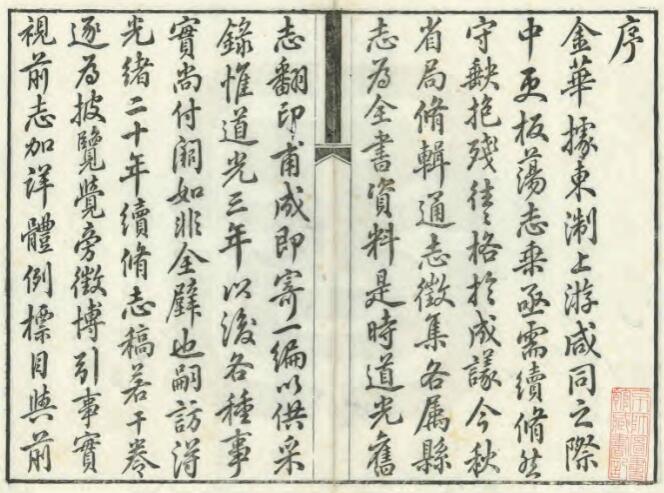 序
金華據東淛上游咸同之際
中更板蕩志乘亟需續脩然
守缺抱殘往〻格於成議今秋
省局脩輯通志徵集各属縣
志為全書資料是時道光舊
志翻印甫成即寄一編以供采
錄惟道光三年以後各種事
實尚付闕如非全璧也嗣訪得
光緒二十年續脩志稿若干卷
逐為披覽覺旁徵博引事實
視前志加詳體例標目與前